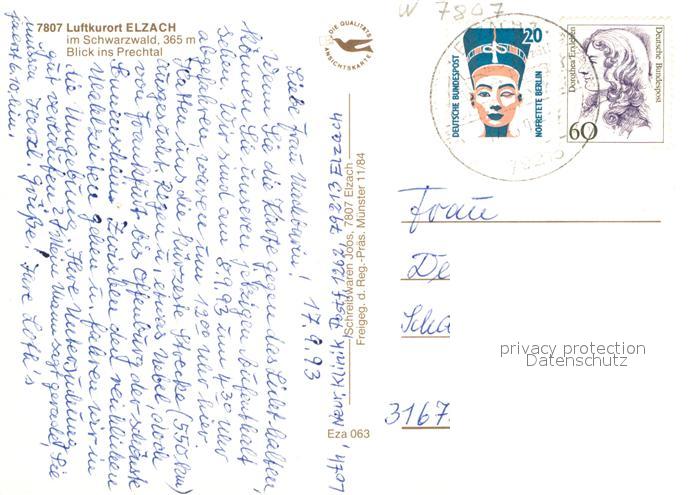 7807 Luftkurort ELZACH
im Schwarzwald, 365 m
Blick ins Prechtal
DIE QUALITÄTS
ANSICHTSKARTE
W 7807
DEUTSCHE BUNDESPOST
20
NOFRETETE BERLIN
Dorothea Erxleben
60
Deutsche Bundespost
17.9.93
Liebe Frau
Wenn Sie die Karte gegen das Licht halten,
können Sie unseren jetzigen Aufenthalt
sehen. Wir sind am 8.9.93 um 4.30 Uhr
abgefahren, waren um 13.00 Uhr hier.
Hatten uns die kürzeste Strecke (550 km)
ausgesucht. Regen, etwas Nebel, doch
von Frankfurt bis Offenburg der schönste
Sonnenschein. Zwischen den reichlichen
Mahlzeiten gehen u. fahren wir in
die Umgebung. Ihre Untersuchung
gut verlaufen? Mein Mann sagt gerade, Sie
müssen
Herzl. Grüße! Ihre Loth's
Loth, Neur. Klinik, Postf. 1262, 79213 Elzach
Schreibwaren Joos, 7807 Elzach
Freigeg. d. Reg.-Präs. Münster 11/84
Eza 063
Frau
De
Scha
3167
privacy protection
Datenschutz